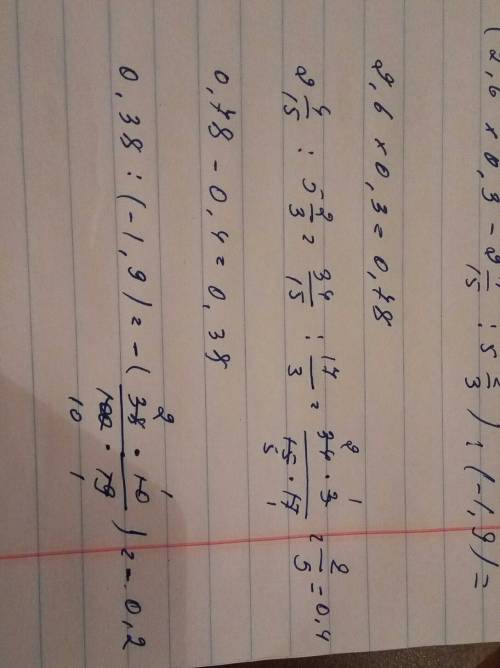 (2,6 × 0,3 - 2 4/15 : 5 2/3) : (-1,9) =
2,6 × 0,3 = 0,78
2 4/15 : 5 2/3 = 34/15 : 17/3 = 34 · 3 / 15 · 17 = 2/5 = 0,4
2 1
5 1
0,78 - 0,4 = 0,38
0,38 : (-1,9) = - (38 · 10 / 100 · 19) = - 0,2
2 1
10 1